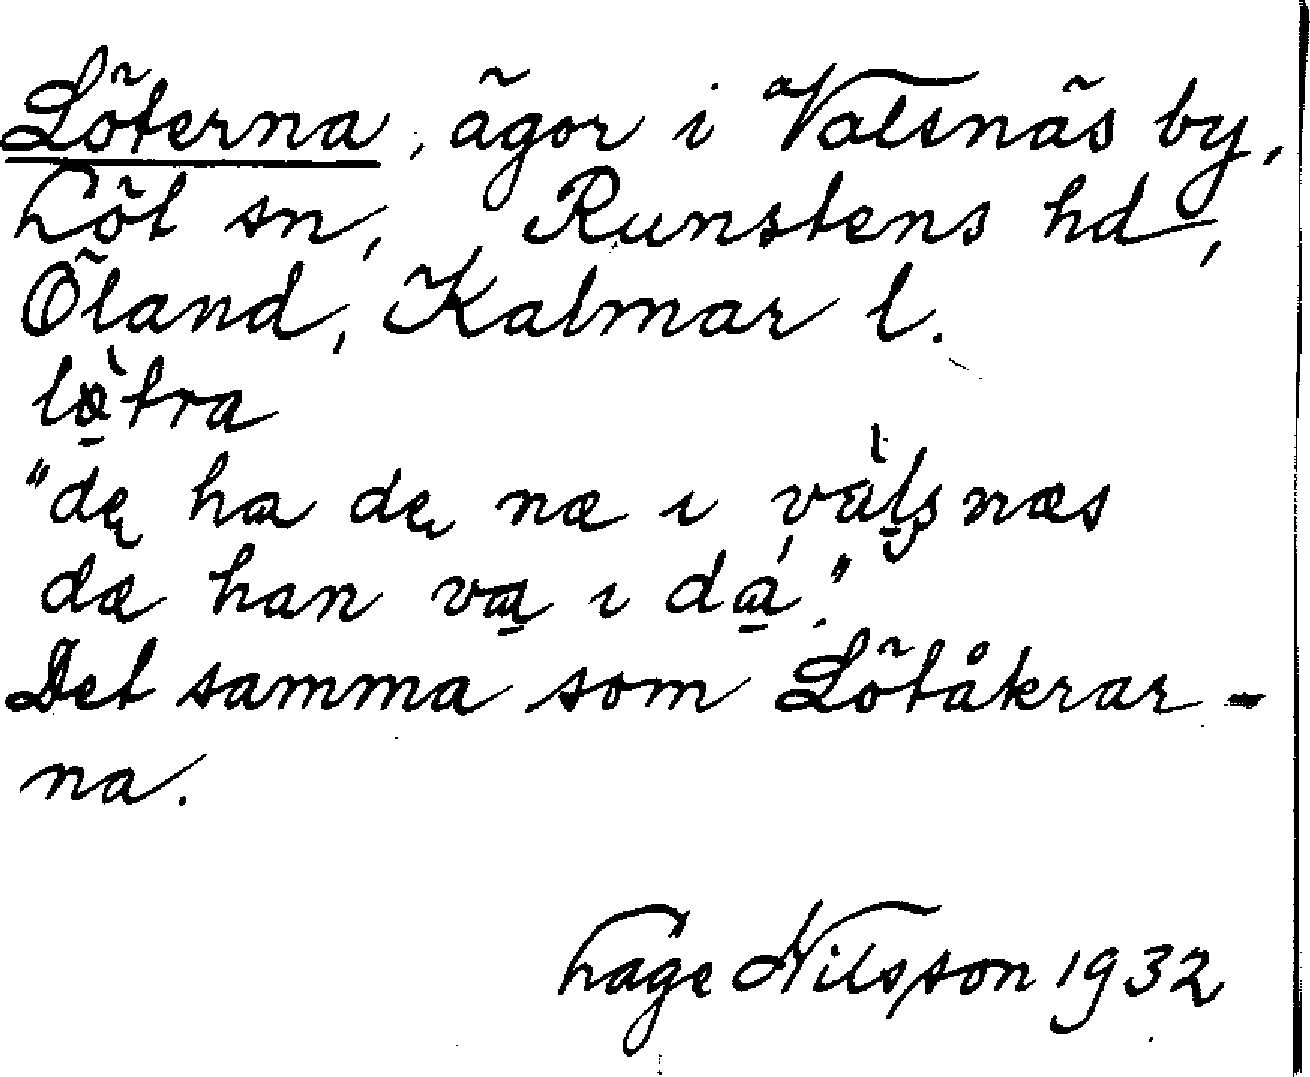 Löterna, ägor i Valsnäs by,
Löt sn, Runstens hd,
Öland, Kalmar l.
lø̱̀tra
"dę ha dę næ ı vàḻsnæs
dæ han va̱ ı dá̱."
Det samma som Lötåkrar-
na.
Lage Nilsson 1932